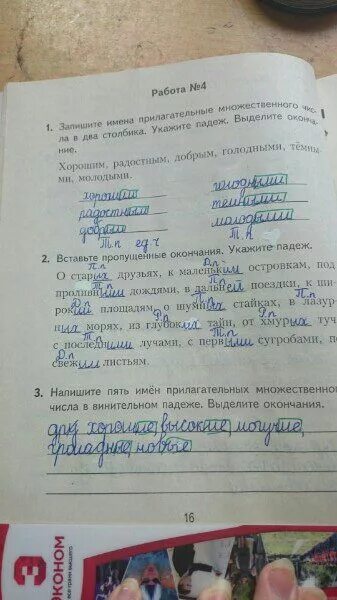 Работа №4
1. Запишите имена прилагательные множественного чис-
ла в два столбика. Укажите падеж. Выделите оконча-
ние.
Хорошим, радостным, добрым, голодными, тёмны-
ми, молодыми.
хорошим голодными
радостным темными
добрым молодыми
Т.п ед.ч Т.п
2. Вставьте пропущенные окончания. Укажите падеж.
П.п Д.п
О старых друзьях, к маленьким островкам, под
Т.п П.п
проливными дождями, в дальней поездки, к ши-
роким площадям, о шумных стайках, в лазур-
ных морях, из глубокий тайн, от хмурых туч
Т.п
с последними лучами, с первыми сугробами, по
Д.п
свежим листьям.
3. Напишите пять имён прилагательных множественного
числа в винительном падеже. Выделите окончания.
хорошие, высокие, могучие,
громадные, новые
16
З
ЭКОНОМ